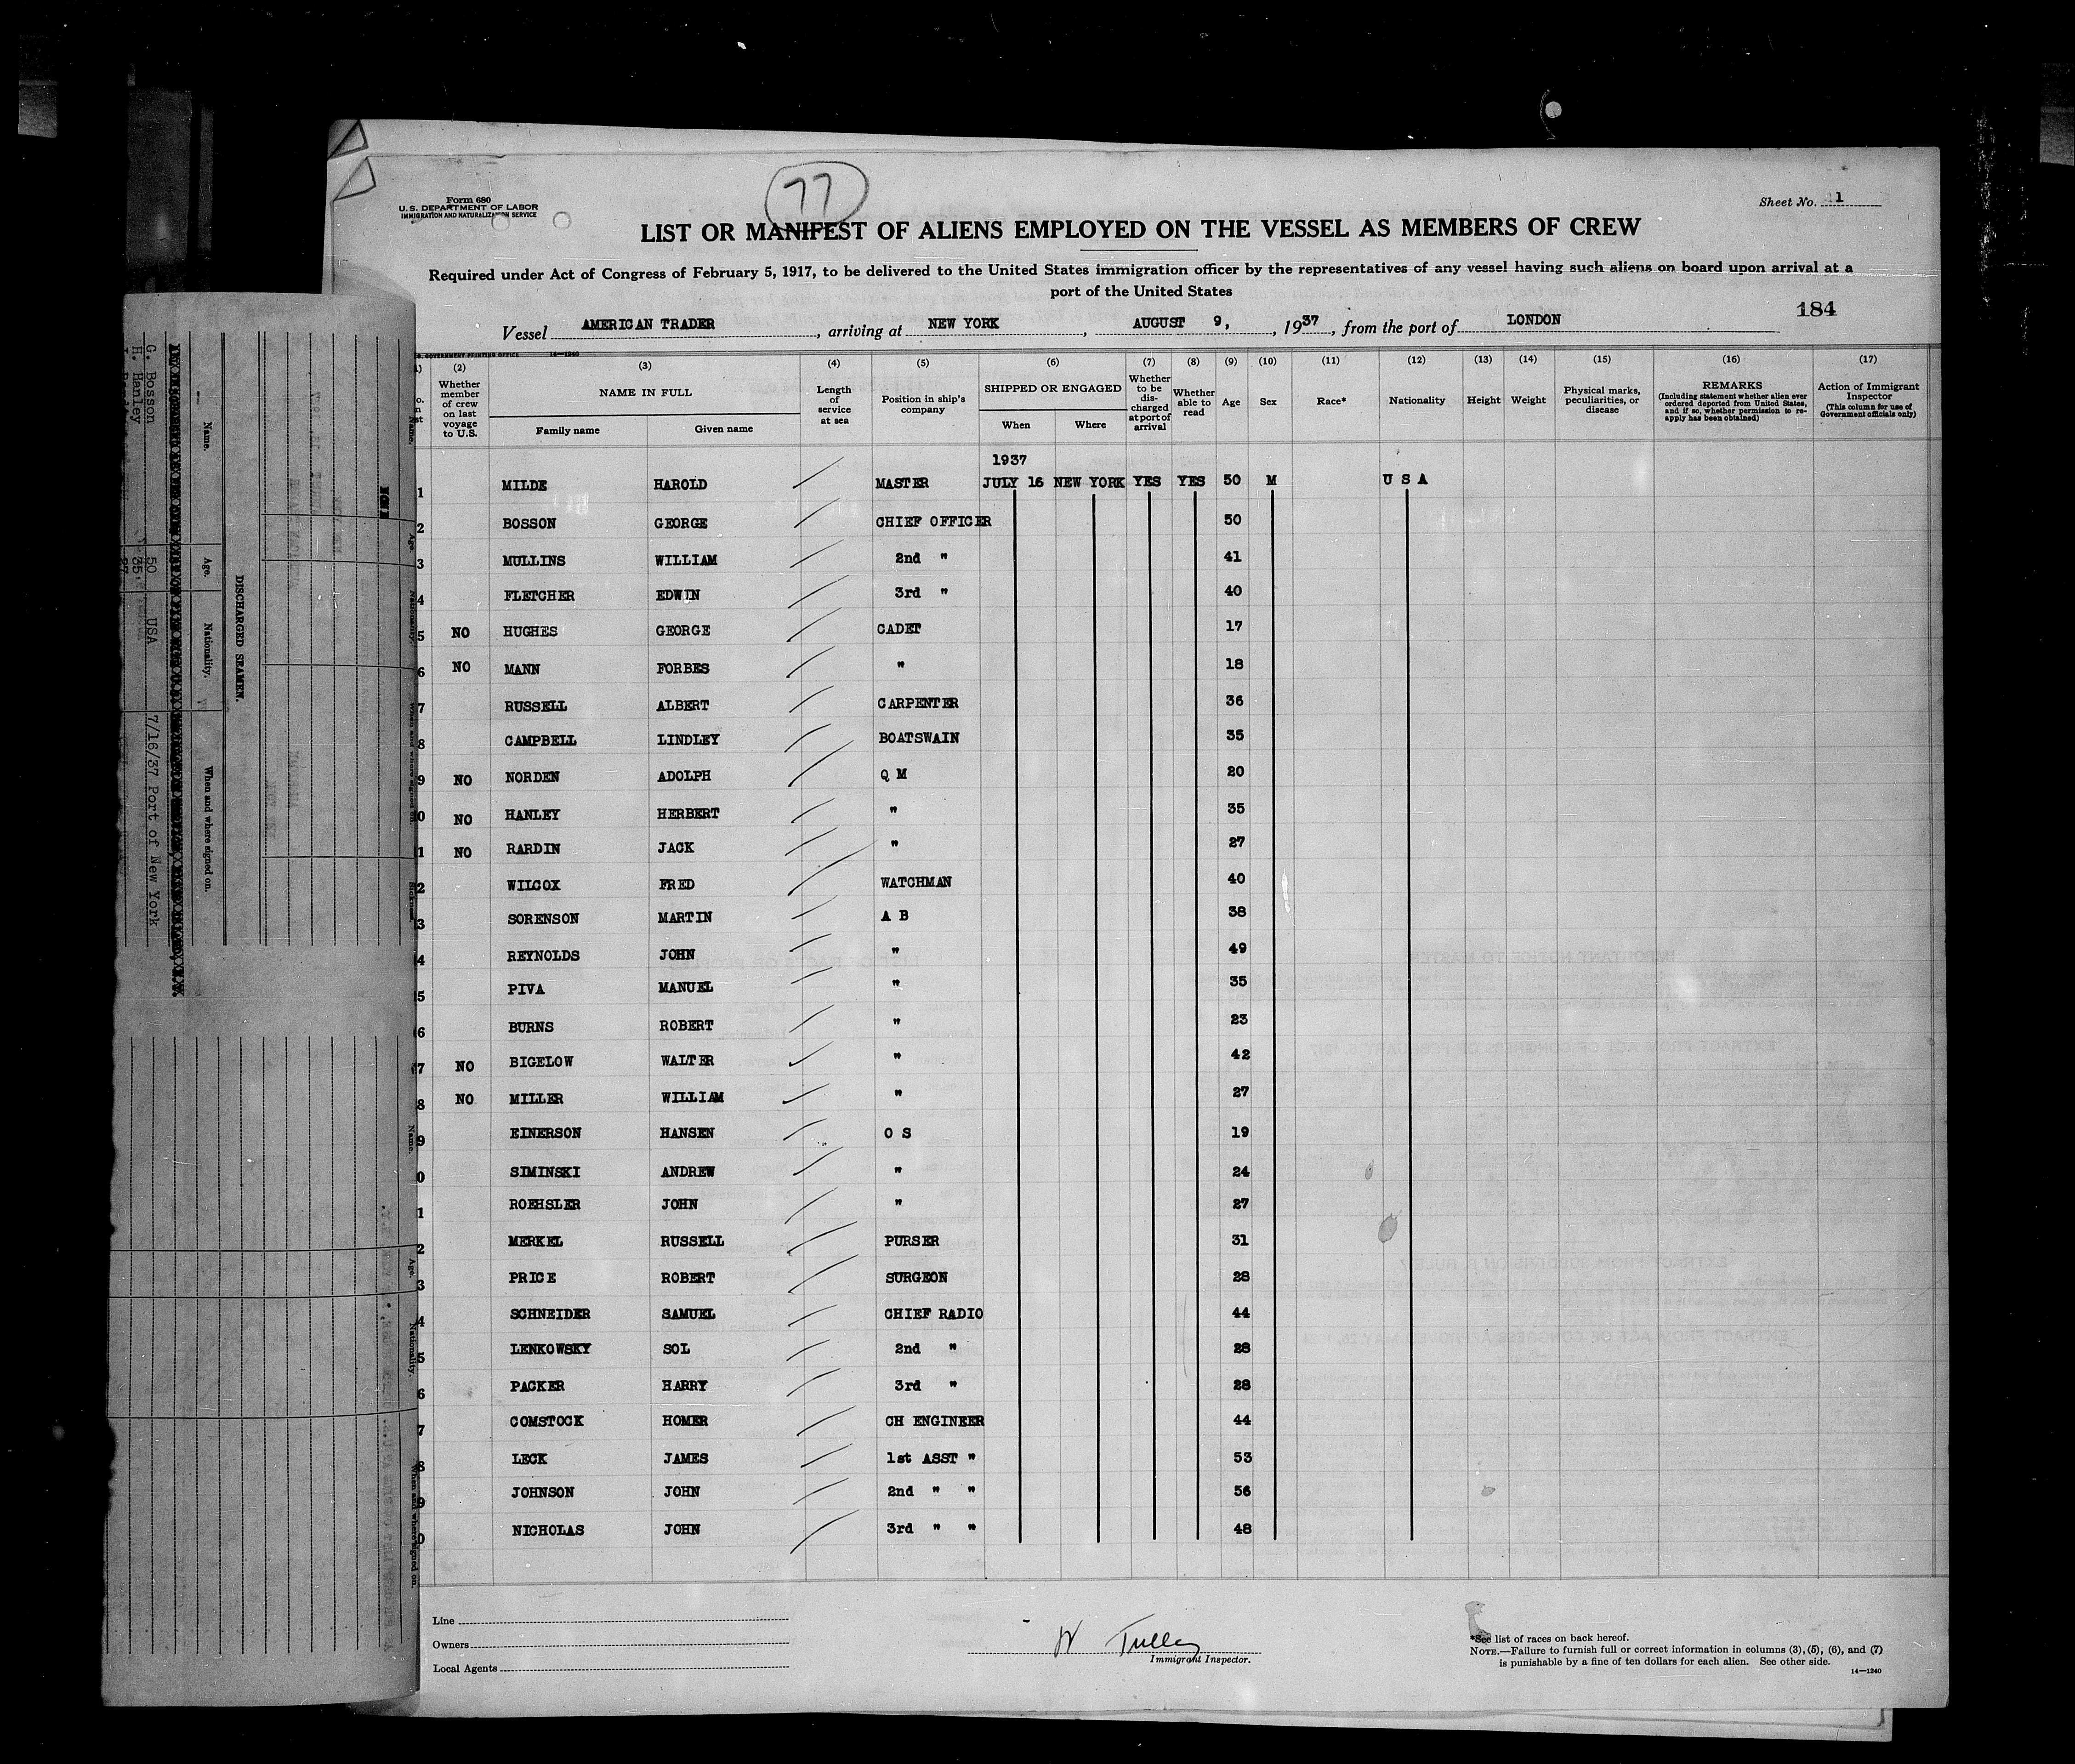 77
Form 680
U. S. DEPARTMENT OF LABOR
IMMIGRATION AND NATURALIZATION SERVICE
Sheet No. 1
LIST OR MANIFEST OF ALIENS EMPLOYED ON THE VESSEL AS MEMBERS OF CREW
Required under Act of Congress of February 5, 1917, to be delivered to the United States immigration officer by the representatives of any vessel having such aliens on board upon arrival at a
port of the United States
184
Vessel AMERICAN TRADER, arriving at NEW YORK, AUGUST 9, 1937, from the port of LONDON
GOVERNMENT PRINTING OFFICE 14—1240
(2) (3) (4) (5) (6) (7) (8) (9) (10) (11) (12) (13) (14) (15) (16) (17)
Whether member of crew on last voyage to U.S.
NAME IN FULL
Family name
Given name
Length of service at sea
Position in ship's company
SHIPPED OR ENGAGED
When
Where
Whether to be discharged at port of arrival
Whether able to read
Age
Sex
Race*
Nationality
Height
Weight
Physical marks, peculiarities, or disease
REMARKS
(Including statement whether alien ever ordered deported from United States, and if so, whether permission to reapply has been obtained)
Action of Immigrant Inspector
(This column for use of Government officials only)
1937
1 MILDE HAROLD MASTER JULY 16 NEW YORK YES YES 50 M U S A
2 BOSSON GEORGE CHIEF OFFICER 50
3 MULLINS WILLIAM 2nd " 41
4 FLETCHER EDWIN 3rd " 40
5 NO HUGHES GEORGE CADET 17
6 NO MANN FORBES " 18
7 RUSSELL ALBERT CARPENTER 36
8 CAMPBELL LINDLEY BOATSWAIN 35
9 NO NORDEN ADOLPH Q M 20
0 NO HANLEY HERBERT " 35
1 NO RARDIN JACK " 27
2 WILCOX FRED WATCHMAN 40
3 SORENSON MARTIN A B 38
4 REYNOLDS JOHN " 49
5 PIVA MANUEL " 35
6 BURNS ROBERT " 23
7 NO BIGELOW WALTER " 42
8 NO MILLER WILLIAM " 27
9 EINERSON HANSEN O S 19
0 SIMINSKI ANDREW " 24
1 ROEHSLER JOHN " 27
2 MERKEL RUSSELL PURSER 31
3 PRICE ROBERT SURGEON 28
4 SCHNEIDER SAMUEL CHIEF RADIO 44
5 LENKOWSKY SOL 2nd " 28
6 PACKER HARRY 3rd " 28
7 COMSTOCK HOMER CH ENGINEER 44
8 LECK JAMES 1st ASST " 53
9 JOHNSON JOHN 2nd " " 56
0 NICHOLAS JOHN 3rd " " 48
Line
Owners
Local Agents
W Tulley
Immigrant Inspector.
*See list of races on back hereof.
NOTE.—Failure to furnish full or correct information in columns (3), (5), (6), and (7)
is punishable by a fine of ten dollars for each alien. See other side.
14—1240
DISCHARGED SEAMEN.
Name. Age. Nationality. When and where signed on.
G. Bosson 50 USA 7/16/37 Port of New York
H. Hanley 35
Name. Age. Nationality. When and where signed on. Sickness.
Name. Age. Nationality. When and where signed on.